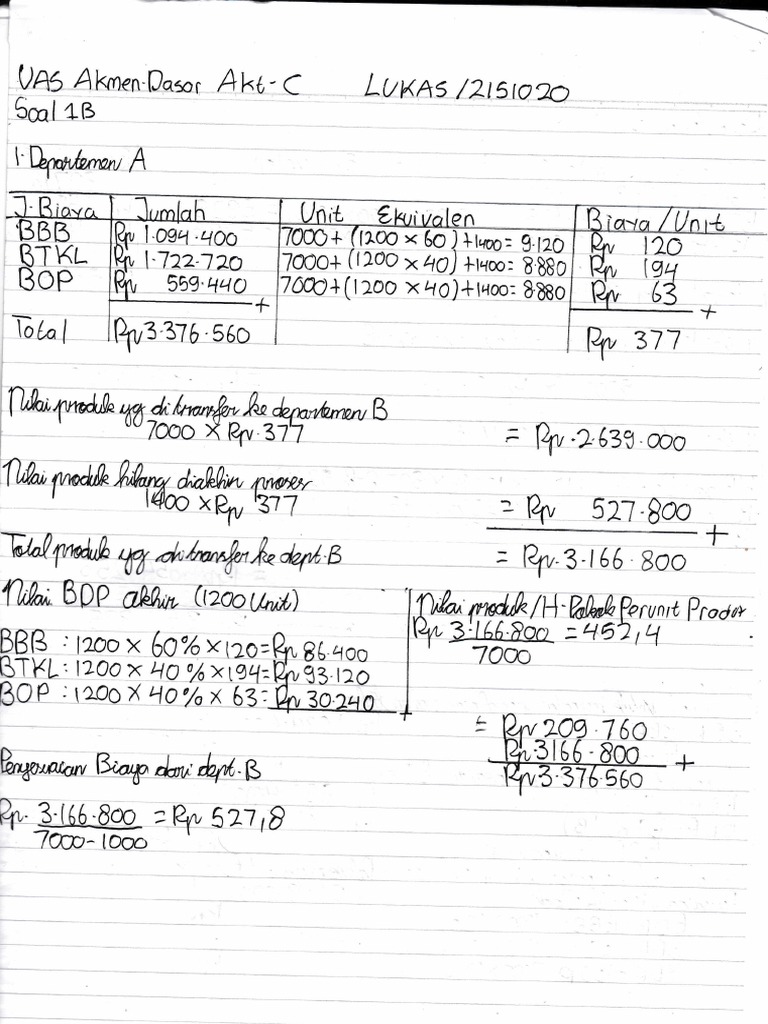 UAS Akmen-Dasar Akt-C LUKAS/2151020
Soal 1B
1. Departemen A
J. Biaya Jumlah Unit Ekuivalen Biaya/Unit
BBB Rp 1.094.400 7000+(1200×60)+1400=9.120 Rp 120
BTKL Rp 1.722.720 7000+(1200×40)+1400=8.880 Rp 194
BOP Rp 559.440 + 7000+(1200×40)+1400=8.880 Rp 63 +
Total Rp 3.376.560 Rp 377
Nilai produk yg ditransfer ke departemen B
7000 × Rp.377 = Rp.2.639.000
Nilai produk hilang diakhir proses
1400 × Rp 377 = Rp 527.800 +
Total produk yg ditransfer ke dept.B = Rp.3.166.800
Nilai BDP akhir (1200 Unit)
BBB : 1200 × 60% × 120 = Rp 86.400
BTKL : 1200 × 40% × 194 = Rp 93.120
BOP : 1200 × 40% × 63 = Rp 30.240 +
Nilai produk/H. Pokok Perunit
Rp 3.166.800 = 452,4
7000
= Rp 209.760
Rp 3166.800 +
Rp 3.376.560
Penyesuaian Biaya dari dept.B
Rp. 3.166.800 = Rp 527,8
7000-1000